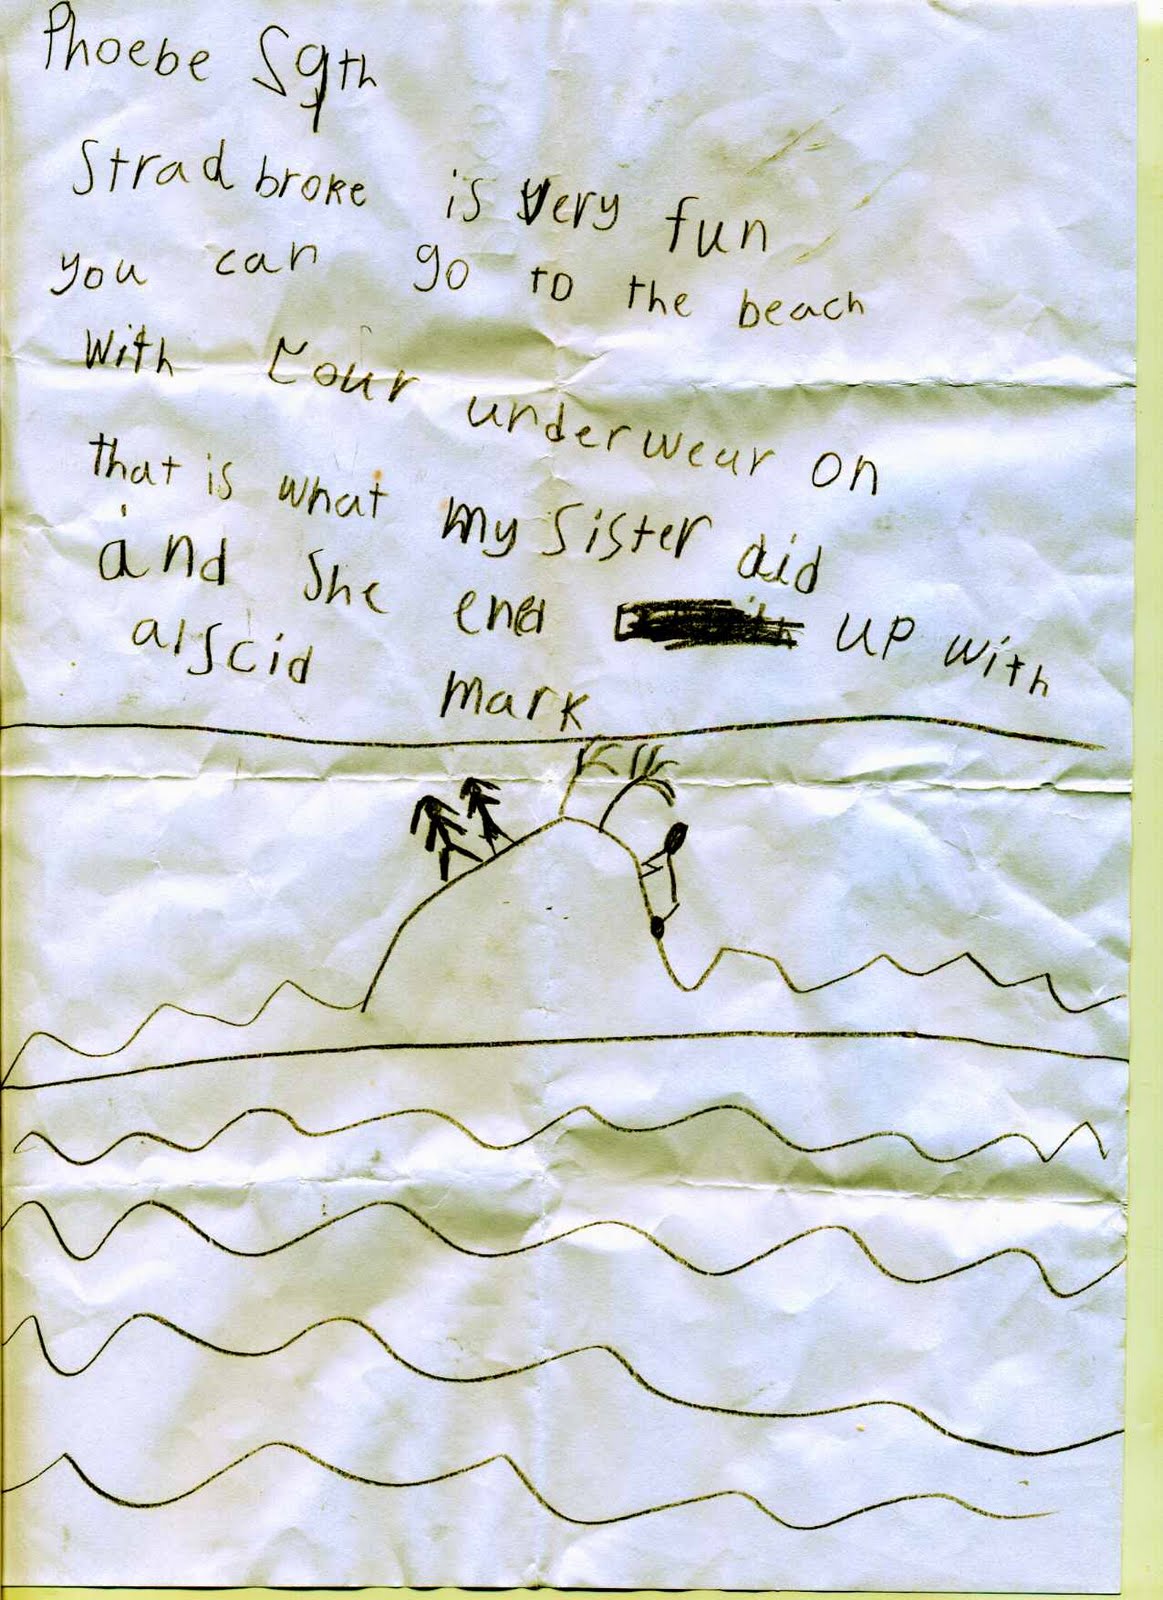 Phoebe Sqth
Stradbroke is very fun
you can go to the beach
With your underwear on
that is what my Sister did
and She ened up with
alscid mark